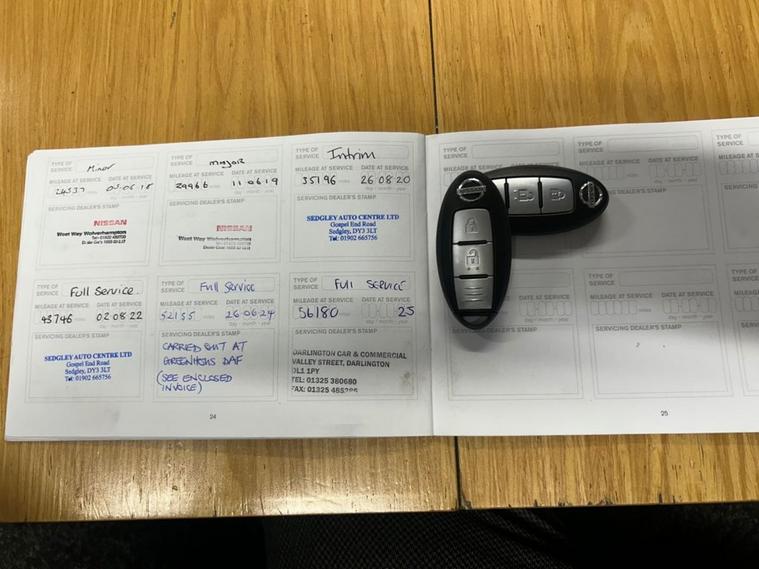 TYPE OF SERVICE Minor
MILEAGE AT SERVICE DATE AT SERVICE
24537 miles 05.06.18
day - month - year
SERVICING DEALER'S STAMP
NISSAN
West Way Wolverhampton
TYPE OF SERVICE major
MILEAGE AT SERVICE DATE AT SERVICE
29966 miles 11 06 19
day - month - year
SERVICING DEALER'S STAMP
NISSAN
West Way Wolverhampton
TYPE OF SERVICE Intrim
MILEAGE AT SERVICE DATE AT SERVICE
35196 miles 26.08.20
day - month - year
SERVICING DEALER'S STAMP
SEDGLEY AUTO CENTRE LTD
Gospel End Road
Sedgley, DY3 3LT
Tel: 01902 665756
TYPE OF SERVICE Full Service
MILEAGE AT SERVICE DATE AT SERVICE
43746 miles 02.08.22
day - month - year
SERVICING DEALER'S STAMP
SEDGLEY AUTO CENTRE LTD
Gospel End Road
Sedgley, DY3 3LT
Tel: 01902 665756
TYPE OF SERVICE Full Service
MILEAGE AT SERVICE DATE AT SERVICE
52155 miles 26.06.24
day - month - year
SERVICING DEALER'S STAMP
CARRIED OUT AT
GREENHOUS DAF
(SEE ENCLOSED
INVOICE)
TYPE OF SERVICE Full SERVICE
MILEAGE AT SERVICE DATE AT SERVICE
56180 miles 25
day - month - year
SERVICING DEALER'S STAMP
DARLINGTON CAR & COMMERCIAL
VALLEY STREET, DARLINGTON
DL1 1PY
TEL: 01325 380680
FAX: 01325
24
TYPE OF SERVICE
TYPE OF SERVICE
TYPE OF SERVICE
MILEAGE AT SERVICE
SERVICING DEALER'S STAMP
NISSAN
NISSAN
TYPE OF SERVICE
DATE AT SERVICE
day - month - year
SERVICING DEALER'S STAMP
TYPE OF SERVICE
MILEAGE AT SERVICE DATE AT SERVICE
miles
day - month - year
SERVICING DEALER'S STAMP
TYPE OF SERVICE
MILEAGE AT SERVICE
SERVICING DEALER'S STAMP
25